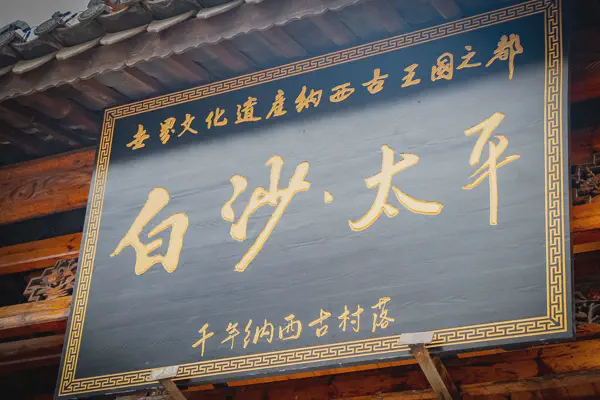 世界文化遗产纳西古王国之都
白沙·太平
千年纳西古村落